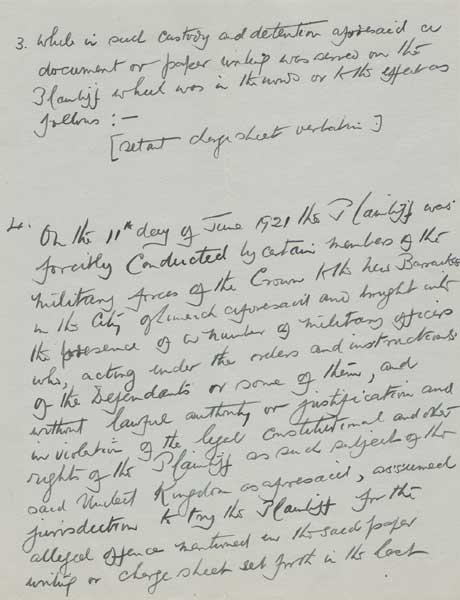 3. While in such custody and detention aforesaid a
document or paper writing was served on the
Plaintiff which was in the words or to the effect as
follows :—
[set out charge sheet verbatim]
4. On the 11th day of June 1921 the Plaintiff was
forcibly Conducted by certain members of the
military forces of the Crown to the New Barracks
in the City of Limerick aforesaid and brought into
the presence of a number of military officers
who, acting under the orders and instructions
of the Defendants or some of them, and
without lawful authority or justification and
in violation of the legal constitutional and other
rights of the Plaintiff as such subject of the
said United Kingdom as aforesaid, assumed
jurisdiction to try the Plaintiff for the
alleged offence mentioned in the said paper
writing or charge sheet set forth in the last